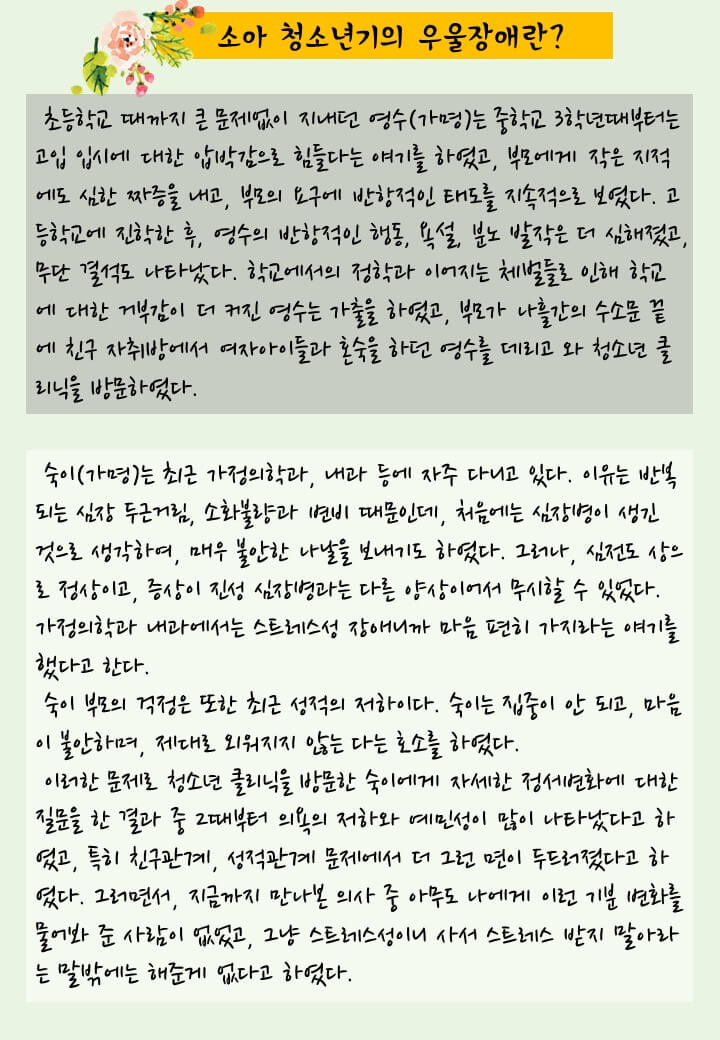 소아 청소년기의 우울장애란?
초등학교 때까지 큰 문제없이 지내던 영수(가명)는 중학교 3학년때부터는
고입 입시에 대한 압박감으로 힘들다는 얘기를 하였고, 부모에게 작은 지적
에도 심한 짜증을 내고, 부모의 요구에 반항적인 태도를 지속적으로 보였다. 고
등학교에 진학한 후, 영수의 반항적인 행동, 욕설, 분노 발작은 더 심해졌고,
무단 결석도 나타났다. 학교에서의 정학과 이어지는 체벌들로 인해 학교
에 대한 거부감이 더 커진 영수는 가출을 하였고, 부모가 나흘간의 수소문 끝
에 친구 자취방에서 여자아이들과 혼숙을 하던 영수를 데리고 와 청소년 클
리닉을 방문하였다.
숙이(가명)는 최근 가정의학과, 내과 등에 자주 다니고 있다. 이유는 반복
되는 심장 두근거림, 소화불량과 변비 때문인데, 처음에는 심장병이 생긴
것으로 생각하여, 매우 불안한 나날을 보내기도 하였다. 그러나, 심전도 상으
로 정상이고, 증상이 진성 심장병과는 다른 양상이어서 무시할 수 있었다.
가정의학과 내과에서는 스트레스성 장애니까 마음 편히 가지라는 얘기를
했다고 한다.
숙이 부모의 걱정은 또한 최근 성적의 저하이다. 숙이는 집중이 안 되고, 마음
이 불안하며, 제대로 외워지지 않는 다는 호소를 하였다.
이러한 문제로 청소년 클리닉을 방문한 숙이에게 자세한 정서변화에 대한
질문을 한 결과 중 2때부터 의욕의 저하와 예민성이 많이 나타났다고 하
였고, 특히 친구관계, 성적관계 문제에서 더 그런 면이 두드러졌다고 하
였다. 그러면서, 지금까지 만나본 의사 중 아무도 나에게 이런 기분 변화를
물어봐 준 사람이 없었고, 그냥 스트레스성이니 사서 스트레스 받지 말아라
는 말밖에는 해준게 없다고 하였다.